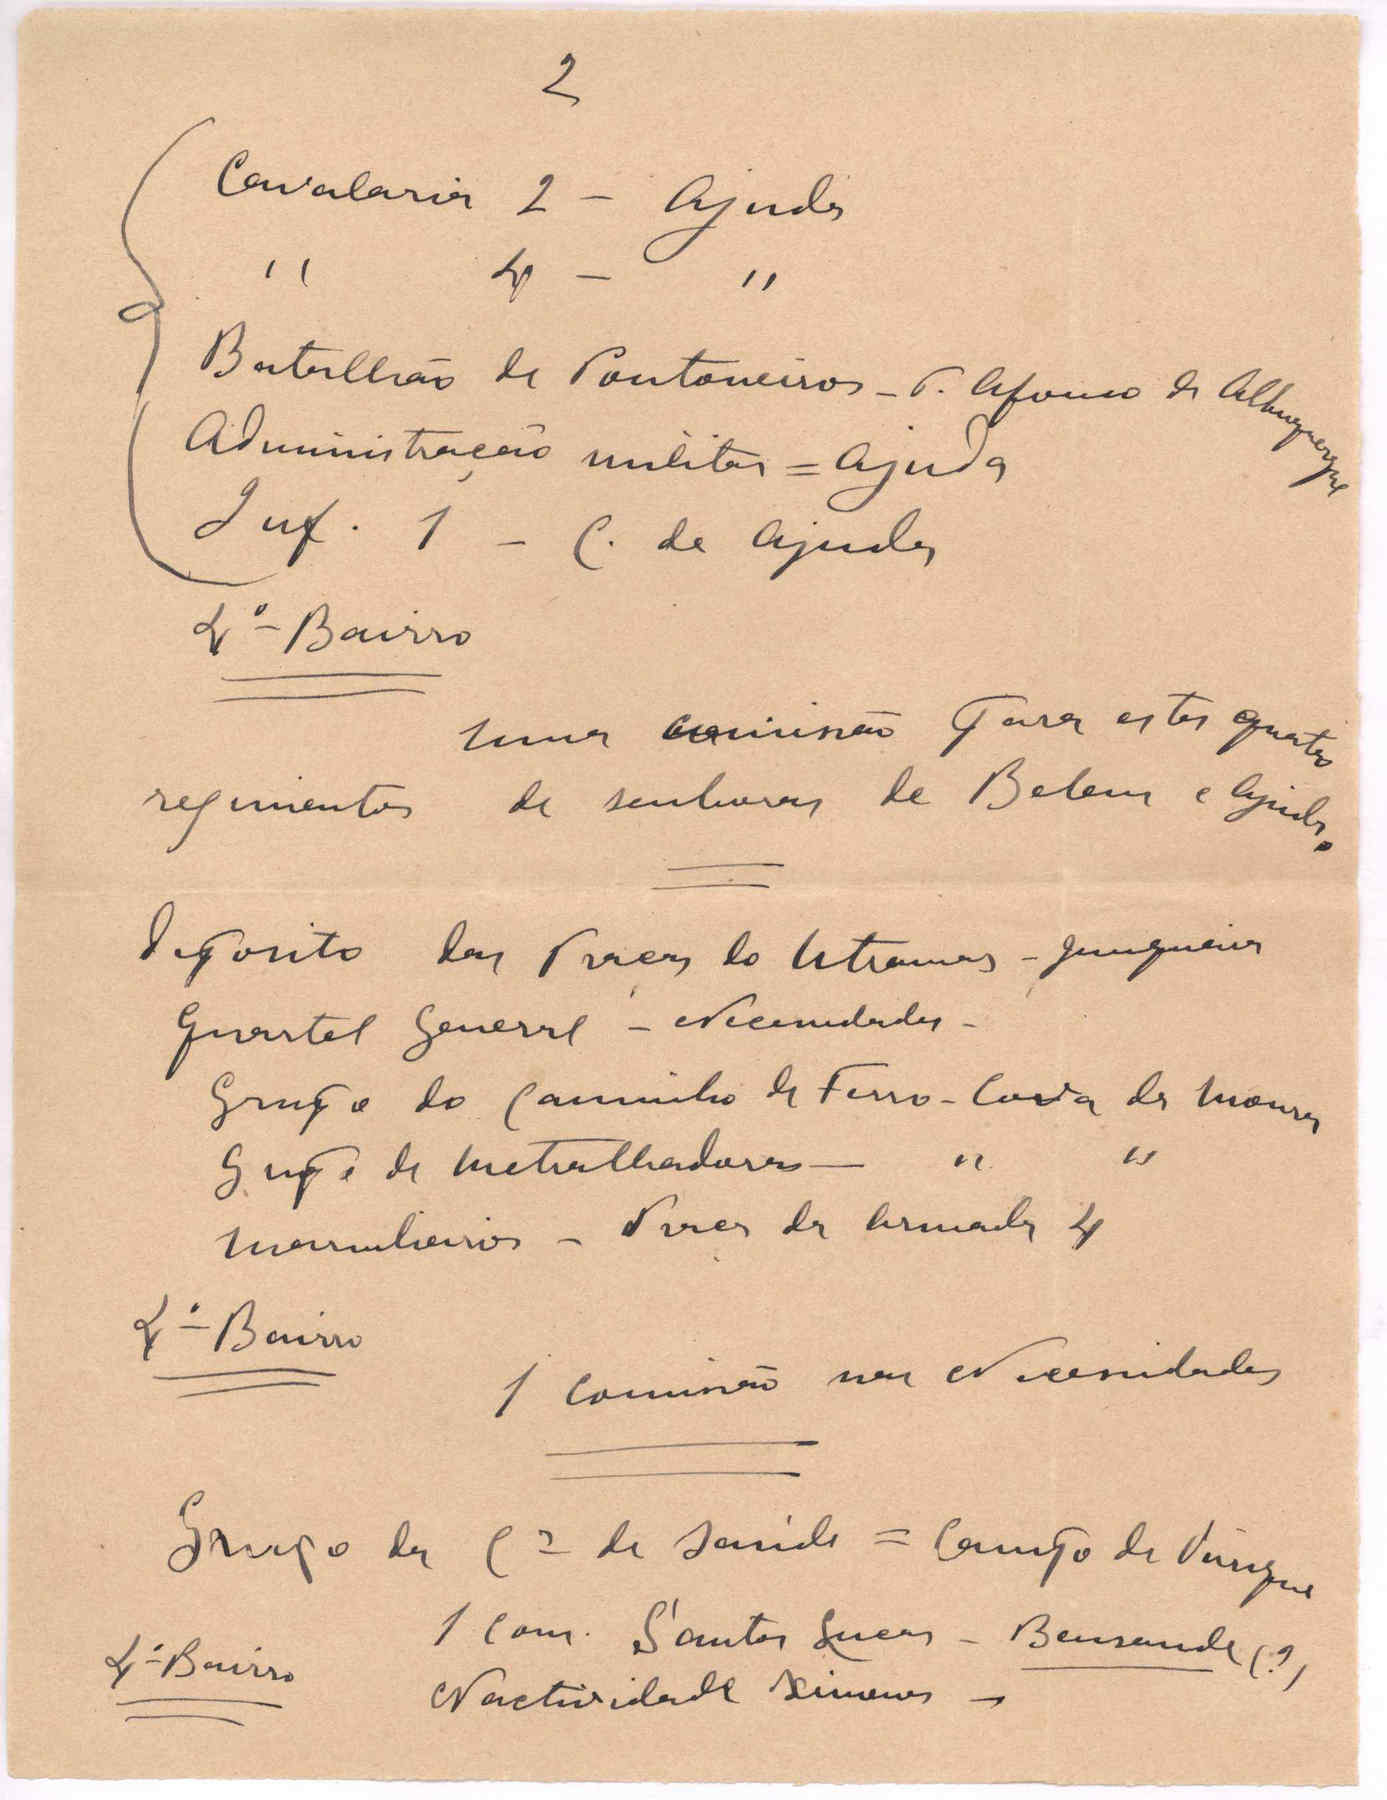 2
Cavalaria 2 - Ajuda
" 4 - "
Batalhão de Pontoneiros - P. Afonso de Albuquerque
Administração militar = Ajuda
Inf. 1 - C. da Ajuda
4º - Bairro
uma comissão para estes quatro
regimentos de senhoras de Belem e Ajuda.
Deposito das Praças do Utramar - Junqueira
Quartel General - Necessidades -
Grupo do Caminho de Ferro - Cova da Moura
Grupo de Metralhadoras - " "
Marinheiros - Praça da Armada 4
4º - Bairro
1 Comissão nas Necessidades
Grupo da Cª de Saúde = Campo de Ourique
1 Com. Santos Lucas - Bensaude (?)
4º - Bairro
Nactividade Ximenes -